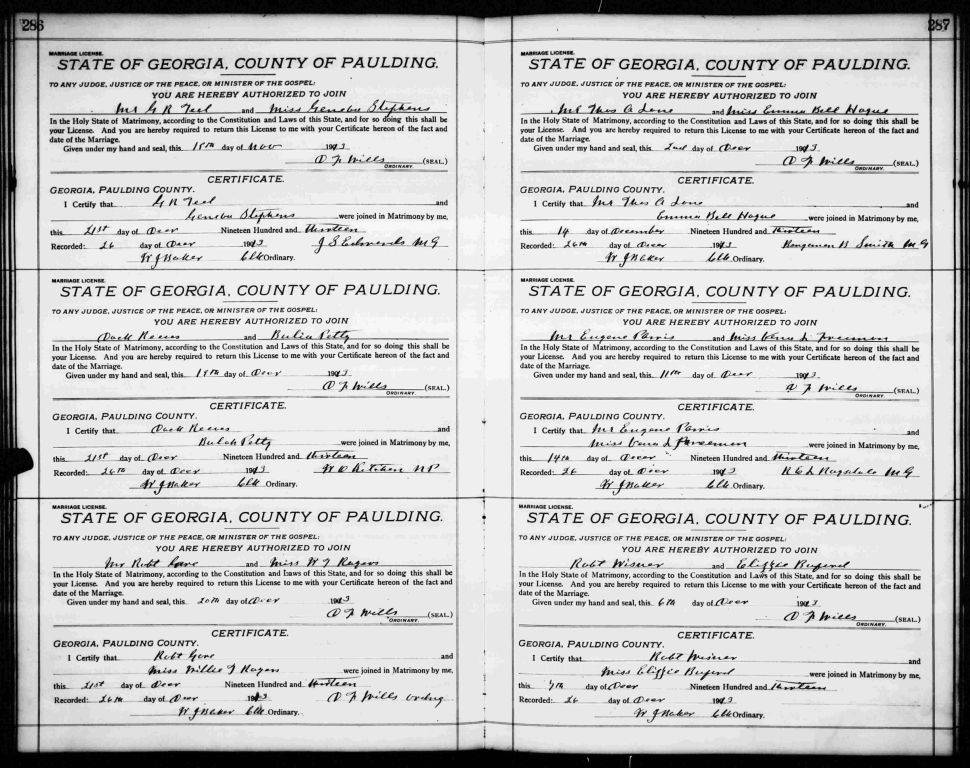 286
MARRIAGE LICENSE.
STATE OF GEORGIA, COUNTY OF PAULDING.
TO ANY JUDGE, JUSTICE OF THE PEACE, OR MINISTER OF THE GOSPEL:
YOU ARE HEREBY AUTHORIZED TO JOIN
Mr G R Teel and Miss Geneba Stephens
In the Holy State of Matrimony, according to the Constitution and Laws of this State, and for so doing this shall be
your License. And you are hereby required to return this License to me with your Certificate hereon of the fact and
date of the Marriage.
Given under my hand and seal, this 15th day of Nov 1913
O F Wills (SEAL.)
ORDINARY.
CERTIFICATE.
GEORGIA, PAULDING COUNTY.
I Certify that G R Teel and
Geneba Stephens were joined in Matrimony by me,
this 21st day of Decr Nineteen Hundred and thirteen
Recorded: 26 day of Decr 1913 J S Edwards M G
W J Baker Clk Ordinary.
MARRIAGE LICENSE.
STATE OF GEORGIA, COUNTY OF PAULDING.
TO ANY JUDGE, JUSTICE OF THE PEACE, OR MINISTER OF THE GOSPEL:
YOU ARE HEREBY AUTHORIZED TO JOIN
Dock Reeves and Petty
In the Holy State of Matrimony, according to the Constitution and Laws of this State, and for so doing this shall be
your License. And you are hereby required to return this License to me with your Certificate hereon of the fact and
date of the Marriage.
Given under my hand and seal, this day of Decr 1913
O F Wills (SEAL.)
ORDINARY.
CERTIFICATE.
GEORGIA, PAULDING COUNTY.
I Certify that Dock Reeves and
Bulah Petty were joined in Matrimony by me,
this 21st day of Decr Nineteen Hundred and thirteen
Recorded: 26th day of Decr 1913 W D Kitchen N P
W J Baker Clk Ordinary.
MARRIAGE LICENSE.
STATE OF GEORGIA, COUNTY OF PAULDING.
TO ANY JUDGE, JUSTICE OF THE PEACE, OR MINISTER OF THE GOSPEL:
YOU ARE HEREBY AUTHORIZED TO JOIN
Mr Robt Gore and Miss W J Rogers
In the Holy State of Matrimony, according to the Constitution and Laws of this State, and for so doing this shall be
your License. And you are hereby required to return this License to me with your Certificate hereon of the fact and
date of the Marriage.
Given under my hand and seal, this 20th day of Decr 1913
O F Wills (SEAL.)
ORDINARY.
CERTIFICATE.
GEORGIA, PAULDING COUNTY.
I Certify that Robt Gore and
Miss Willie J Rogers were joined in Matrimony by me,
this 21st day of Decr Nineteen Hundred and thirteen
Recorded: 26th day of Decr 1913 O F Wills
W J Baker Clk Ordinary.
287
MARRIAGE LICENSE.
STATE OF GEORGIA, COUNTY OF PAULDING.
TO ANY JUDGE, JUSTICE OF THE PEACE, OR MINISTER OF THE GOSPEL:
YOU ARE HEREBY AUTHORIZED TO JOIN
Mr Thos A Lane and Miss Emma Bell Hogue
In the Holy State of Matrimony, according to the Constitution and Laws of this State, and for so doing this shall be
your License. And you are hereby required to return this License to me with your Certificate hereon of the fact and
date of the Marriage.
Given under my hand and seal, this 2nd day of Decr 1913
O F Wills (SEAL.)
ORDINARY.
CERTIFICATE.
GEORGIA, PAULDING COUNTY.
I Certify that Mr Thos A Lane and
Emma Bell Hogue were joined in Matrimony by me,
this 14 day of December Nineteen Hundred and thirteen
Recorded: 26th day of Decr 1913 B Smith M G
W J Baker Clk Ordinary.
MARRIAGE LICENSE.
STATE OF GEORGIA, COUNTY OF PAULDING.
TO ANY JUDGE, JUSTICE OF THE PEACE, OR MINISTER OF THE GOSPEL:
YOU ARE HEREBY AUTHORIZED TO JOIN
Mr Eugene Parris and Miss Vera L Freeman
In the Holy State of Matrimony, according to the Constitution and Laws of this State, and for so doing this shall be
your License. And you are hereby required to return this License to me with your Certificate hereon of the fact and
date of the Marriage.
Given under my hand and seal, this 11th day of Decr 1913
O F Wills (SEAL.)
ORDINARY.
CERTIFICATE.
GEORGIA, PAULDING COUNTY.
I Certify that Mr Eugene Parris and
Miss L Freeman were joined in Matrimony by me,
this 14th day of Decr Nineteen Hundred and thirteen
Recorded: 26 day of Decr 1913 R C L Ragsdale M G
W J Baker Clk Ordinary.
MARRIAGE LICENSE.
STATE OF GEORGIA, COUNTY OF PAULDING.
TO ANY JUDGE, JUSTICE OF THE PEACE, OR MINISTER OF THE GOSPEL:
YOU ARE HEREBY AUTHORIZED TO JOIN
Robt Wisner and Buford
In the Holy State of Matrimony, according to the Constitution and Laws of this State, and for so doing this shall be
your License. And you are hereby required to return this License to me with your Certificate hereon of the fact and
date of the Marriage.
Given under my hand and seal, this 6th day of Decr 1913
O F Wills (SEAL.)
ORDINARY.
CERTIFICATE.
GEORGIA, PAULDING COUNTY.
I Certify that Robt Wisner and
Miss Buford were joined in Matrimony by me,
this 7th day of Decr Nineteen Hundred and thirteen
Recorded: 26 day of Decr 1913
W J Baker Clk Ordinary.